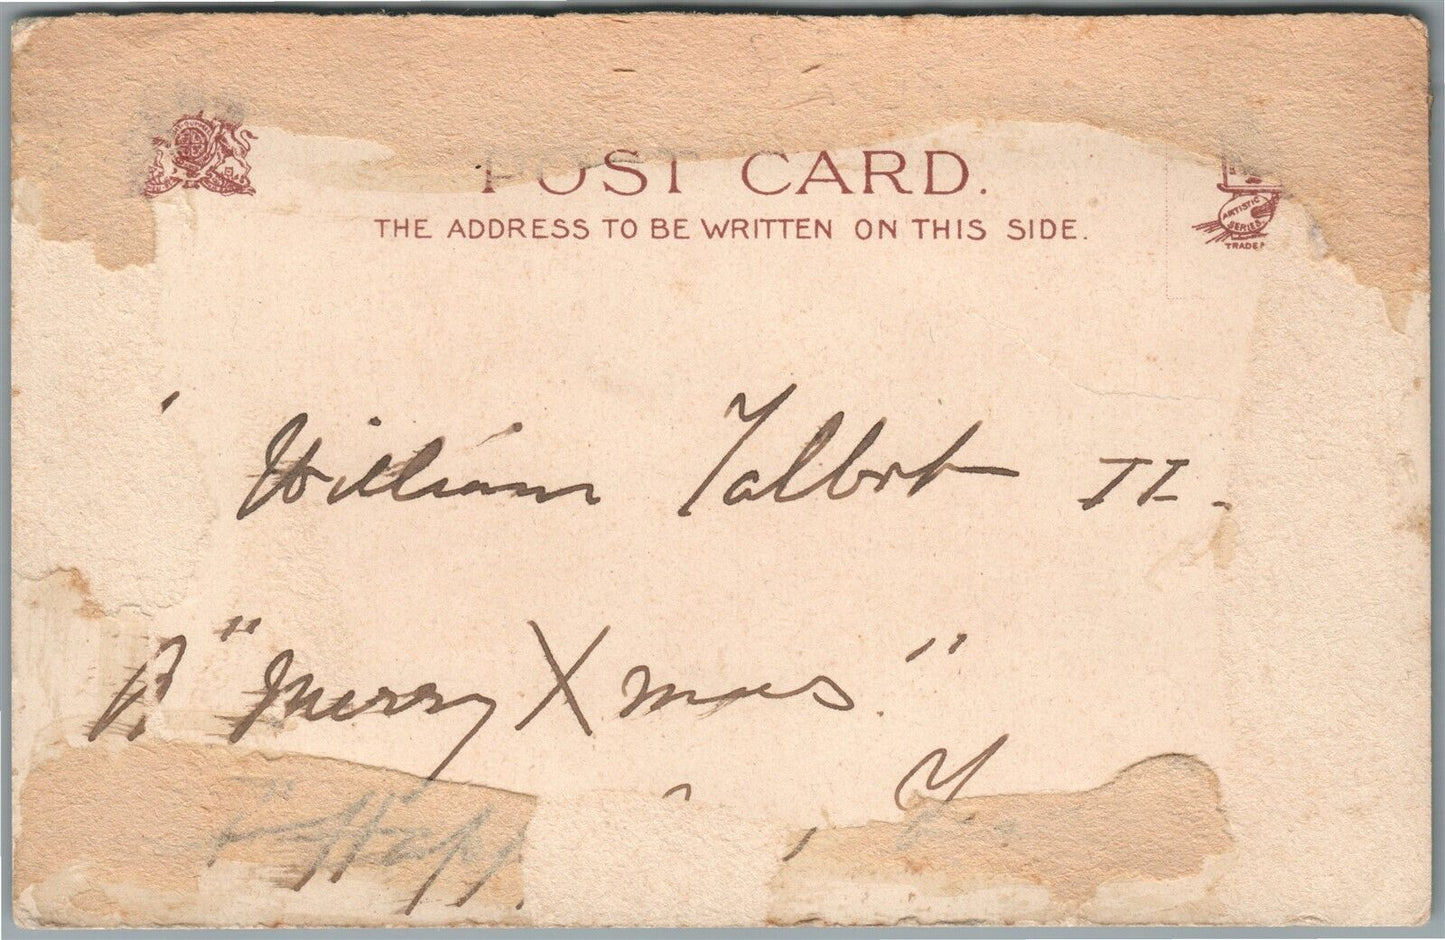 POST CARD.
THE ADDRESS TO BE WRITTEN ON THIS SIDE.
ARTISTIC
SERIES
TRADE
William Talbot II.
A "Merry Xmas".
"Happy